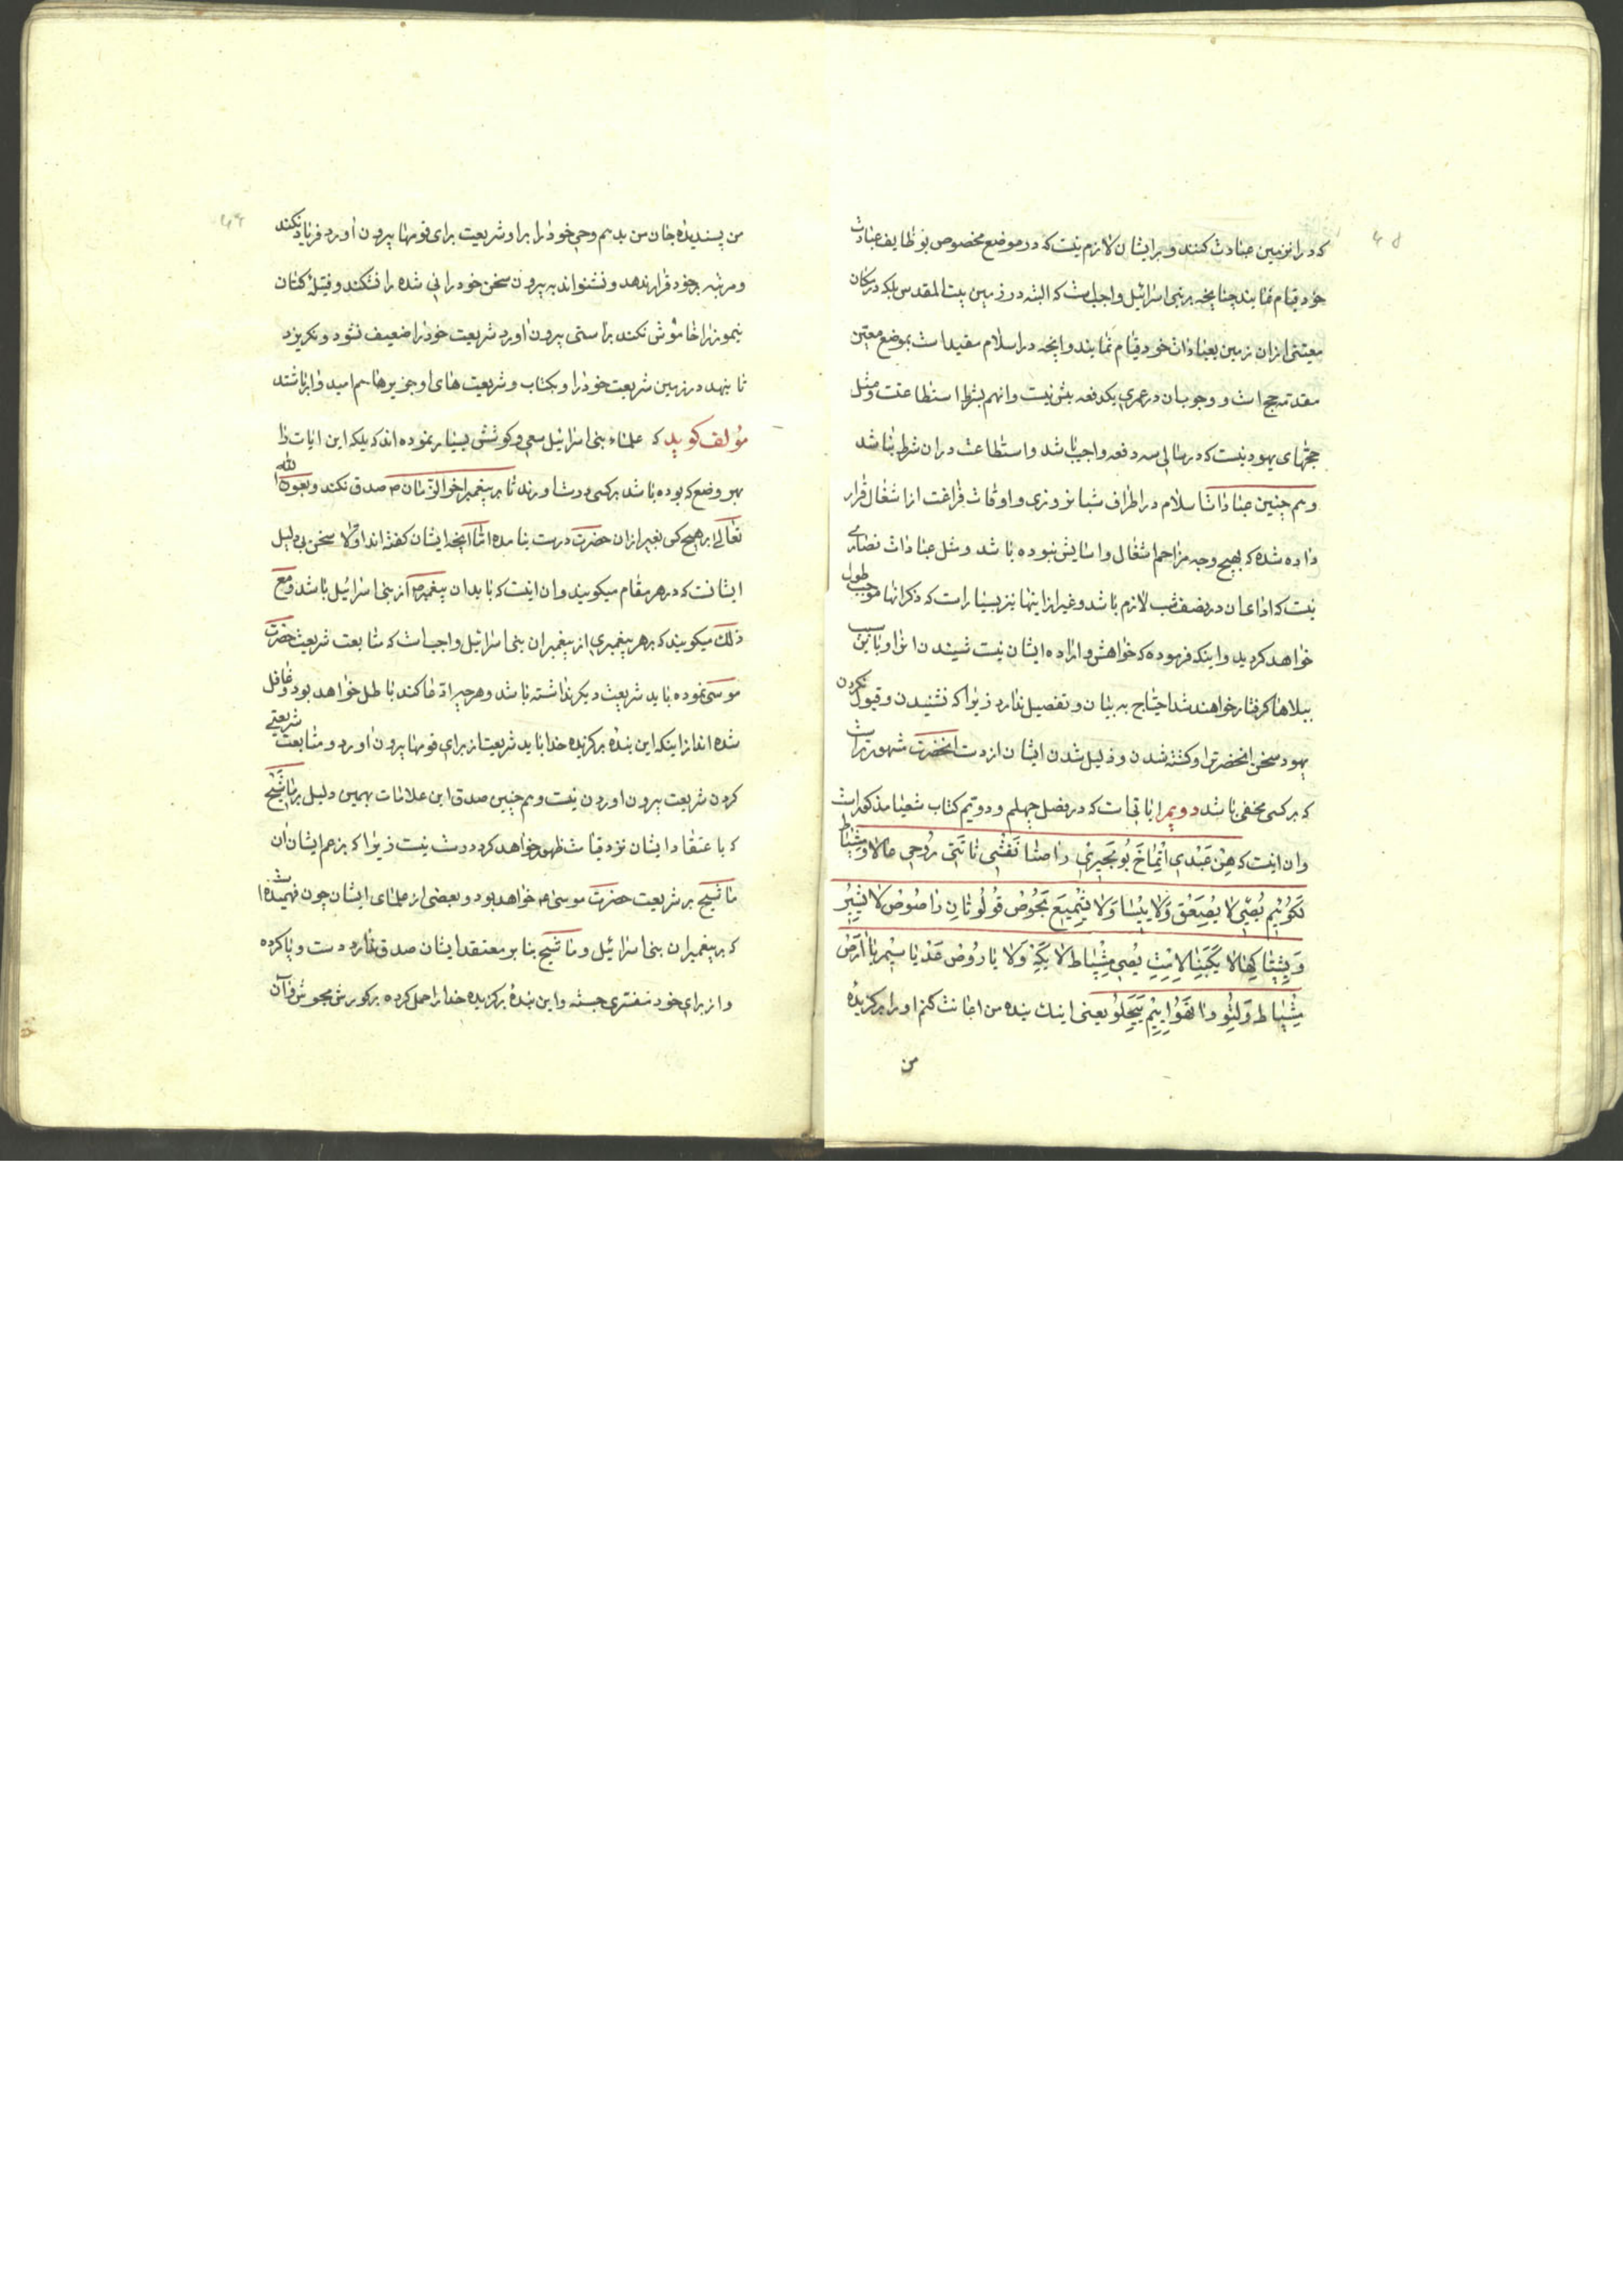 که در آنزمین عبادت کنند و بر ایشان لازم نیست که در موضع مخصوص بوظایف عبادت
خود قیام نمایند چنانچه بر بنی اسرائیل واجب است که البته در زمین بیت المقدس بلکه در مکان
معینی از آن زمین بعبادات خود قیام نمایند و آنچه در اسلام مقید است بموضع معین
مقدمه حج است و وجوب آن در عمری یکدفعه بیش نیست و آنهم بشرط استطاعت و مثل
حجهای یهود نیست که در سالی سه دفعه واجب باشد و استطاعت در آن شرط نباشد
و هم چنین عبادات اسلام در اطراف شبانروزی و اوقات فراغت از اشغال قرار
داده شده که بهیچ وجه مزاحم اشغال و آسایش نبوده باشد و مثل عبادات نصاری
نیست که ادای آن در نصف شب لازم باشد و غیر از اینها نیز بسیار است که ذکر آنها موجب طول
خواهد کردید و اینکه فرموده که خواهش و اراده ایشان نیست شنیدن او را و باین سبب
ببلاها کرفتار خواهند شد احتیاج به بیان و تفصیل ندارد زیرا که نشنیدن و قبول نکردن
یهود سخن آنحضرت را و کشته شدن و ذلیل شدن ایشان از دست آنحضرت مشهورتر است
که بر کسی مخفی باشد دویم آیاتی است که در فصل چهلم و دویم کتاب شعیا مذکور است
و آن اینست که هِن عَبْدی اتماخ بو بحیری راصتا نفشی ناتتی روحی عالاو مشپاط
لکوئیم یصی لا یصعق ولا ییسا ولا یشمیع بحوص قولو قانه راصوص لا یشبر
و پشتا کها لا یکبنا لامت یصی مشپاط لا یکه ولا یاروص عد یاسیم باارص
مشپاط ولتورا تقوا ییم ییحلو یعنی اینک بنده من اعانت کنم او را برکزیده
من
من پسندیده جان من بدهم وحی خود را بر او شریعت برای قومها بیرون آورد فریاد نکند
و مرتبه بر خود قرار ندهد و نشنواند به بیرون سخن خود را نی شده را نشکند و فتیله کتان
نیم‌سوز را خاموش نکند براستی بیرون آورد شریعت خود را ضعیف نشود و نکریزد
تا بنهد در زمین شریعت خود را و بکتاب و شریعت های او جزیره‌ها هم امیدوار باشند
مؤلف کوید که علماء بنی اسرائیل سعی و کوشش بسیار نموده اند که بلکه این آیات را
بهر وضع که بوده باشد بر کسی درست آورند تا بر پیغمبر آخر الزمان ص صدق نکند و بعون الله
تعالی بر هیچ کس بغیر از آن حضرت درست نیامده اما آنچه ایشان کفته اند اولا سخن بی دلیل
ایشانست که در هر مقام میکویند و آن اینست که باید آن پیغمبر ص از بنی اسرائیل باشد و مع
ذلک میکویند که بر هر پیغمبری از پیغمبران بنی اسرائیل واجب است که متابعت شریعت حضرت
موسی نموده باید شریعت دیکر نداشته باشد و هر چه ادعا کند باطل خواهد بود و غافل
شده اند از اینکه این بنده برکزیده خدا باید شریعت از برای قومها بیرون آورد و متابعت شریعتی
کردن شریعت بیرون آوردن نیست و هم چنین صدق این علامات بهمین دلیل بر ماشیح
که باعتقاد ایشان نزد قیامت ظهور خواهد کرد درست نیست زیرا که بزعم ایشان آن
ماشیح بر شریعت حضرت موسی ع خواهد بود و بعضی از علمای ایشان چون فهمیده است
که بر پیغمبران بنی اسرائیل و ماشیح بنا بر معتقد ایشان صدق ندارد دست و پا کرده
و از برای خود مفتری جسته و این بنده برکزیده خدا را حمل کرده بر کورش مجوش و آن